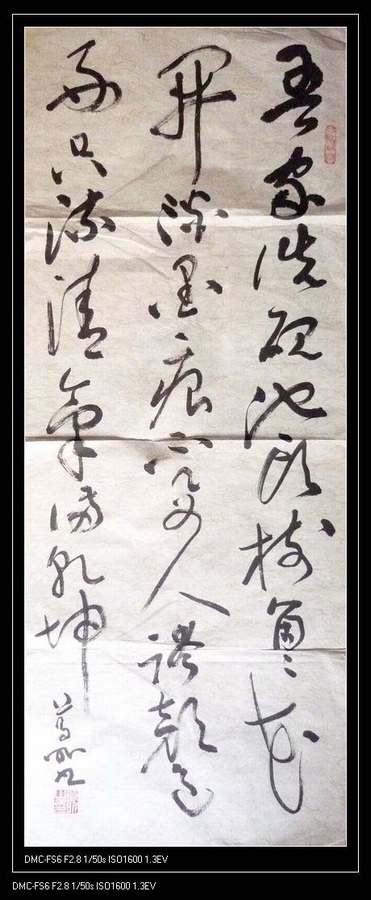 吾家洗硯池頭樹箇〻花
開淡墨痕不要人誇顏色
好只流清氣滿乾坤
DMC-FS6 F2.8 1/50s ISO1600 1.3EV
DMC-FS6 F2.8 1/50s ISO1600 1.3EV